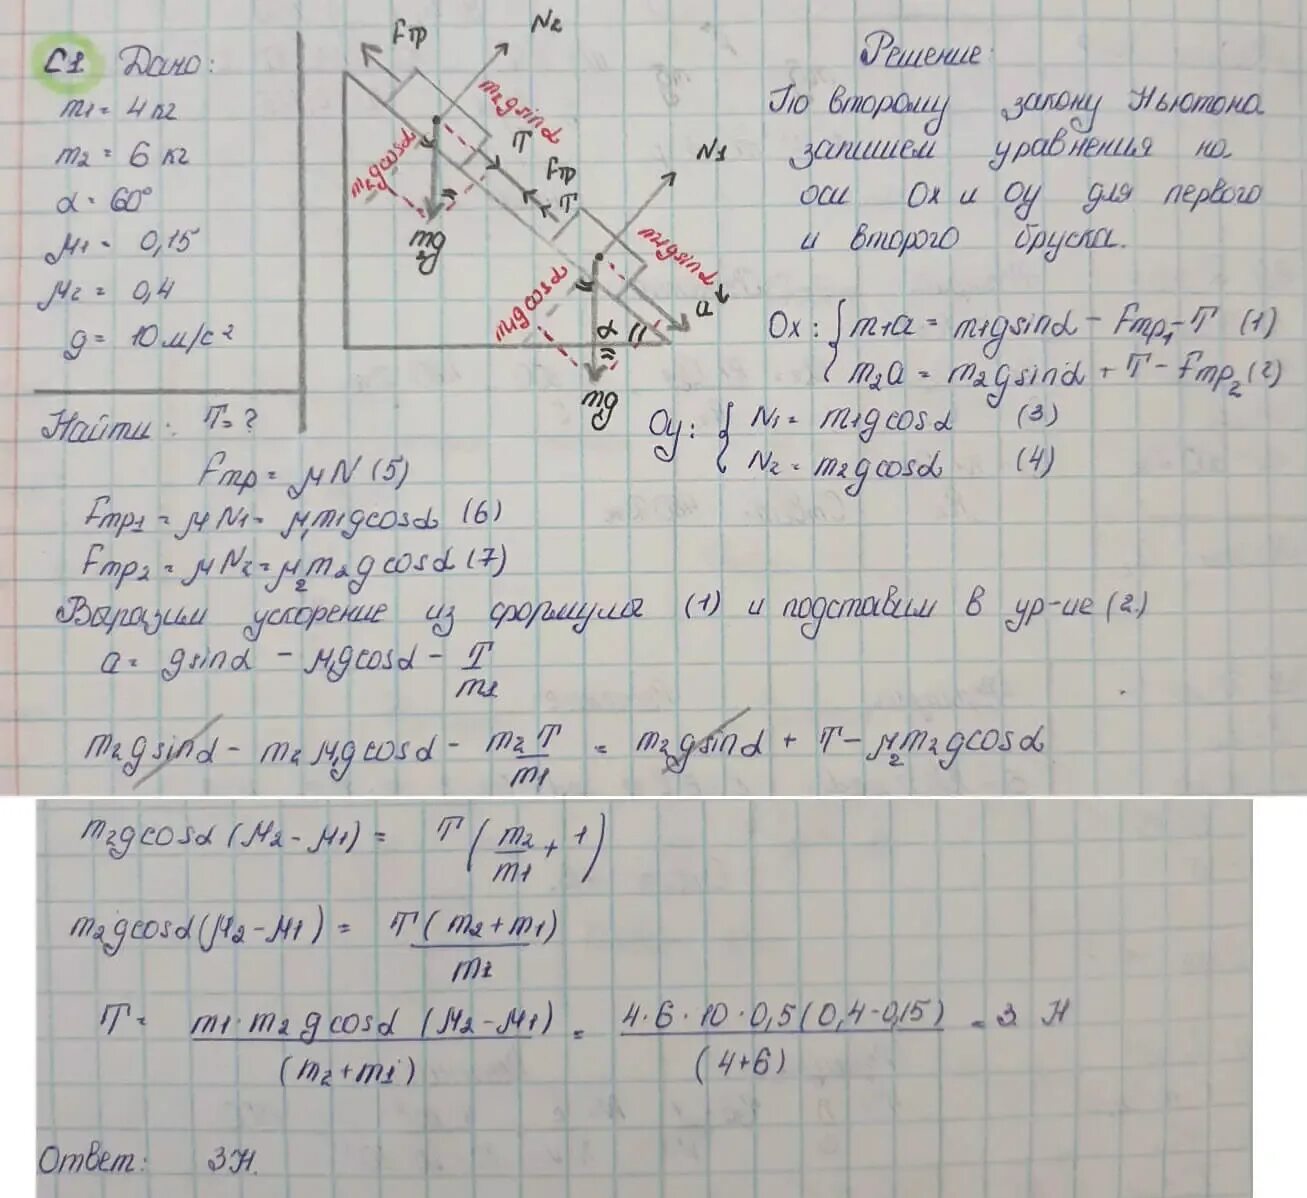 C1 Дано:
m1 = 4 кг
m2 = 6 кг
α = 60°
μ1 = 0,15
μ2 = 0,4
g = 10 м/с²
Найти: T = ?
Fтр
N2
m2gsinα
T
m2gcosα
m2g
Fтр
T
N1
m1gsinα
m1gcosα
α
a
mg
Решение:
По второму закону Ньютона
запишем уравнения на
оси Ox и Oy для первого
и второго бруска.
Ox: { m1a = m1gsinα - Fтр1 - T (1)
m2a = m2gsinα + T - Fтр2 (2)
Oy: { N1 = m1gcosα (3)
N2 = m2gcosα (4)
Fтр = μN (5)
Fтр1 = μN1 = μ1m1gcosα (6)
Fтр2 = μN2 = μ2m2gcosα (7)
Выразим ускорение из формула (1) и подставим в ур-ие (2)
a = gsinα - μ1gcosα - T/m1
m2gsinα - m2μ1gcosα - m2T/m1 = m2gsinα + T - μ2m2gcosα
m2gcosα (μ2 - μ1) = T (m2/m1 + 1)
m2gcosα (μ2 - μ1) = T (m2 + m1)/m1
T = m1·m2gcosα (μ2 - μ1)/(m2 + m1) = 4·6·10·0,5(0,4-0,15)/(4+6) = 3 Н
Ответ: 3Н.